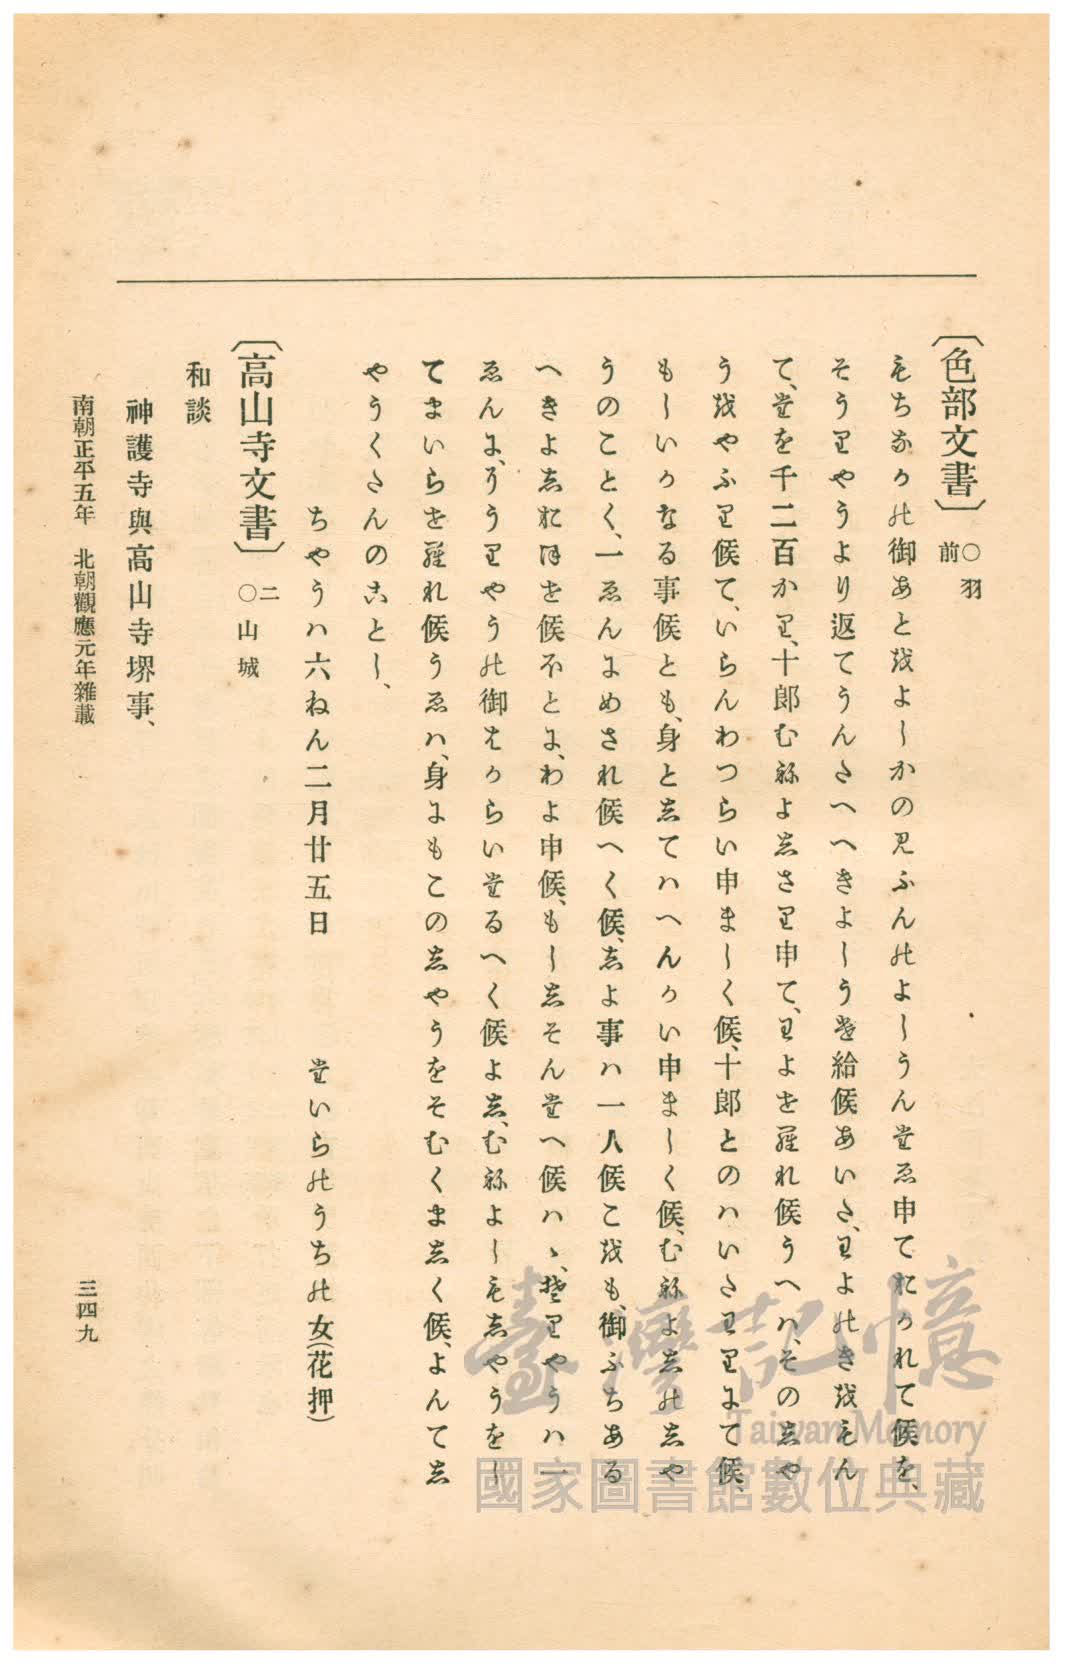 〔色部文書〕 ○羽前
もちなかの御あとをよしかの見ふんのよしうんたゑ申ておかれて候を、
そうりやうより返てうんさへへきよしうけ給候あいさ、りよのきをもん
て、堂を千二百かり、十郎むねよしさり申て、りよせられ候うへハ、そのしや
うをやふり候て、いらんわつらい申ましく候、十郎とのハいさりりにて候、
もしいかなる事候とも、身としてハへんかい申ましく候、むねよしのしや
うのことく、一ゑんにめされ候へく候、しよ事ハ一人候こをも、御ふちある
へきよしおほせ候ほとに、わよ申候、もししそんたへ候ハヽ、そりやうハ一
ゑんに、りうりやうの御はからいたるへく候よし、むねよしもしやうをし
てまいらせられ候うゑハ、身にもこのしやうをそむくましく候、よんてし
やうくさんのことし、
ちやうハ六ねん二月廿五日 たいらのうちの女(花押)
〔高山寺文書〕 二 ○山城
和談
神護寺與高山寺堺事、
南朝正平五年 北朝觀應元年雜載
三四九
臺灣記憶
Taiwan Memory
國家圖書館數位典藏